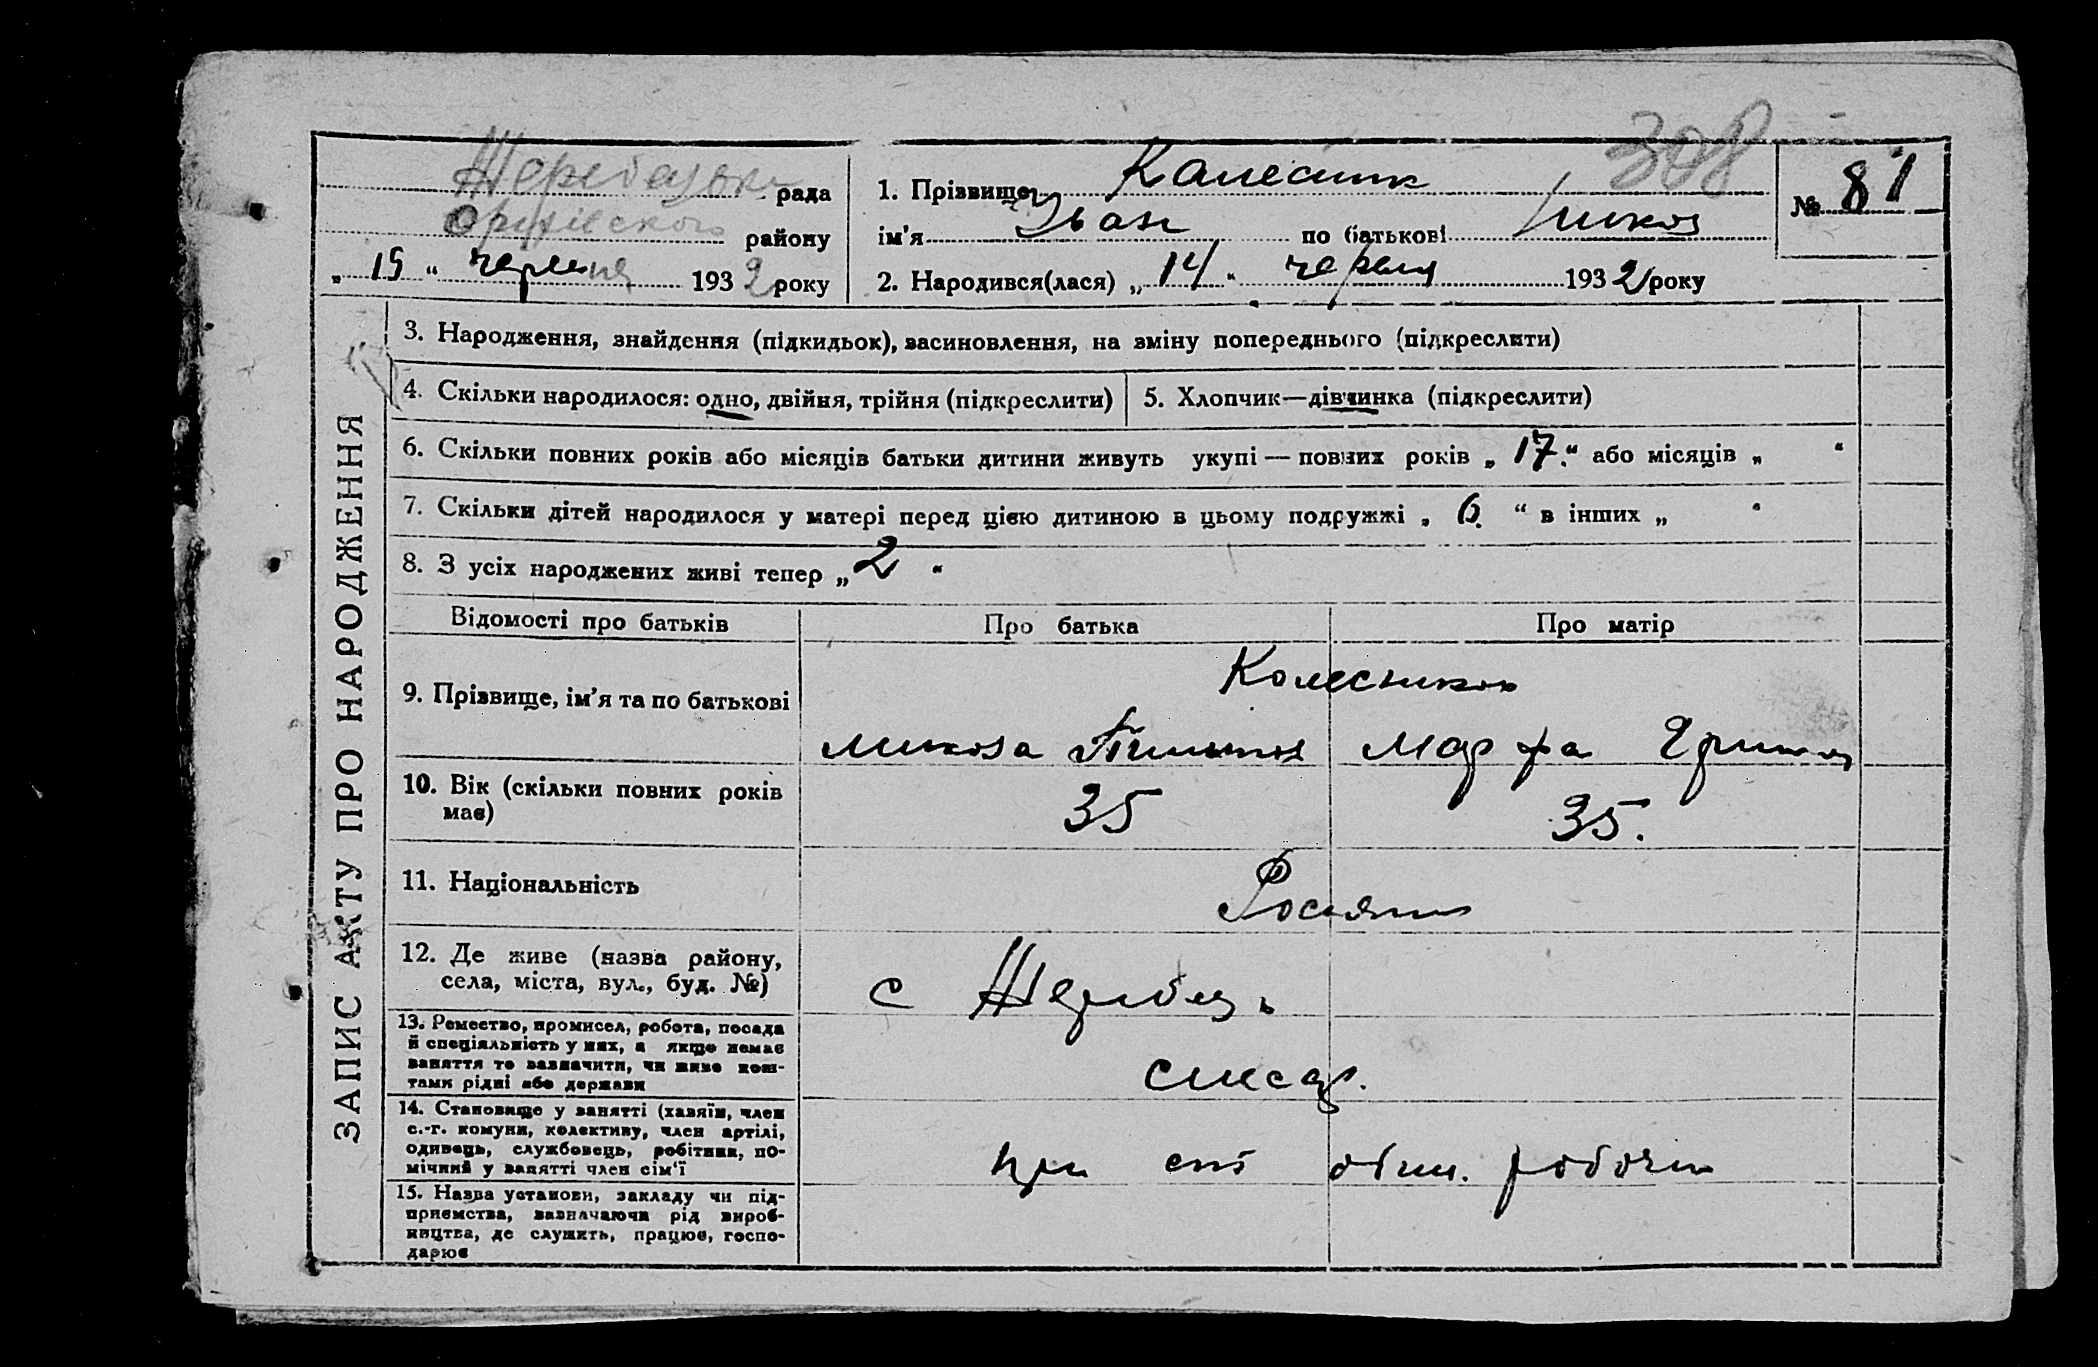 308
Жеребецька рада
Оріхівского району
„ 15 “ червня 1932 року
1. Прізвище Калесник
ім'я Іван по батькові Микол
№ 81
2. Народився(лася) „ 14 “ червня 1932 року
ЗАПИС АКТУ ПРО НАРОДЖЕННЯ
3. Народження, знайдення (підкидьок), засиновлення, на зміну попереднього (підкреслити)
4. Скільки народилося: одно, двійня, трійня (підкреслити)
5. Хлопчик—дівчинка (підкреслити)
6. Скільки повних років або місяців батьки дитини живуть укупі — повних років „ 17 “ або місяців „ “
7. Скільки дітей народилося у матері перед цією дитиною в цьому подружжі „ 6 “ в інших „ “
8. З усіх народжених живі тепер „ 2 “
Відомості про батьків
Про батька
Про матір
9. Прізвище, ім'я та по батькові
Колесников
Микола
Марфа
10. Вік (скільки повних років
має)
35
35.
11. Національність
Росіяни
12. Де живе (назва району,
села, міста, вул., буд. №)
с Жеребець
13. Ремество, промисел, робота, посада
й спеціяльність у них, а якщо немає
заняття то зазначити, чи живе кош-
тами рідні або держави
слесар.
14. Становище у занятті (хазяїн, член
с.-г. комуни, колективу, член артілі,
одинець, службовець, робітник, по-
мічний у занятті член сім'ї
при робочи
15. Назва установи, закладу чи під-
приємства, зазначаючи рід вироб-
ництва, де служить, працює, госпо-
дарює